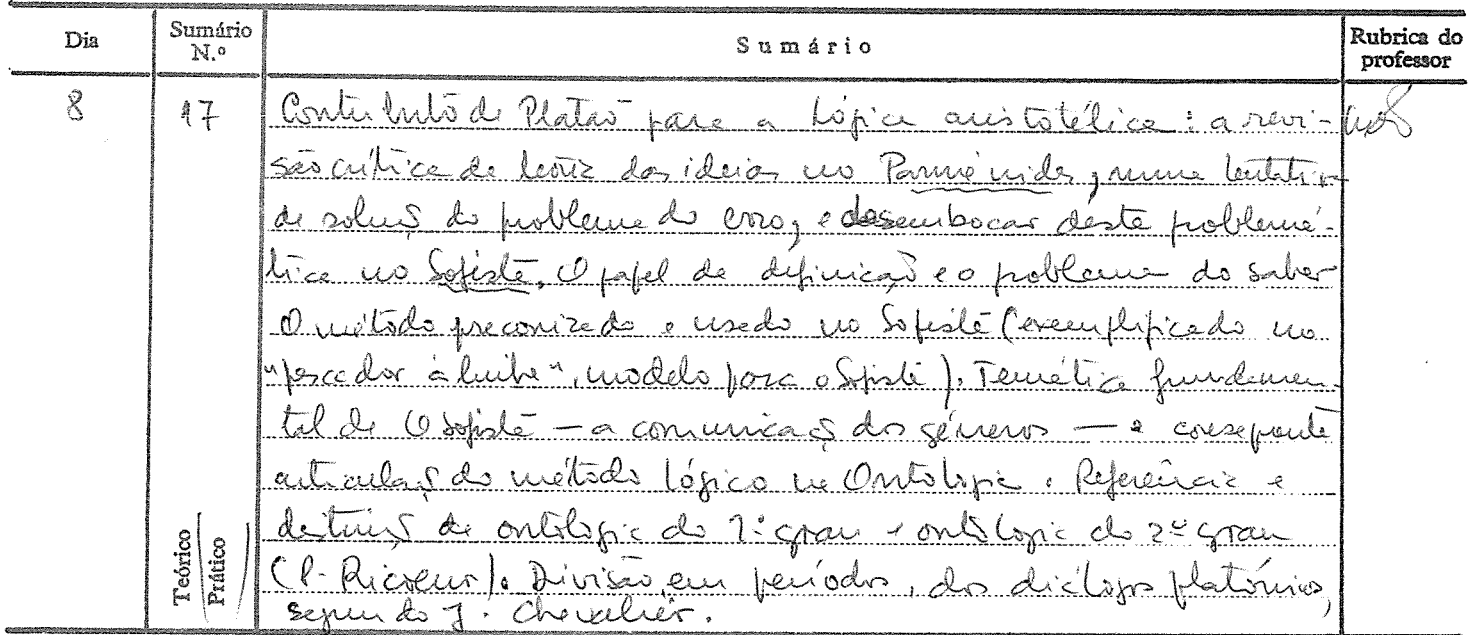 Dia Sumário N.º Sumário Rubrica do professor
8 17 Contributo de Platão para a Lógica aristotélica: a revi-
são crítica da teoria das ideias no Parménides, numa tentativa
de soluç. do problema do erro, e desembocar desta problemá-
tica no Sofista. O papel da definição e o problema do saber
O método preconizado e usado no Sofista (exemplificado no
"pescador à linha", modelo para o Sofista). Temática fundamen-
tal de O Sofista — a comunicaç. dos géneros — e consequente
articulaç. do método lógico na Ontologia. Referência e
distinç. de ontologia do 1º grau e ontologia do 2º grau
(P. Ricoeur). Divisão, em períodos, dos diálogos platónicos,
segundo J. Chevalier.
Teórico
Prático